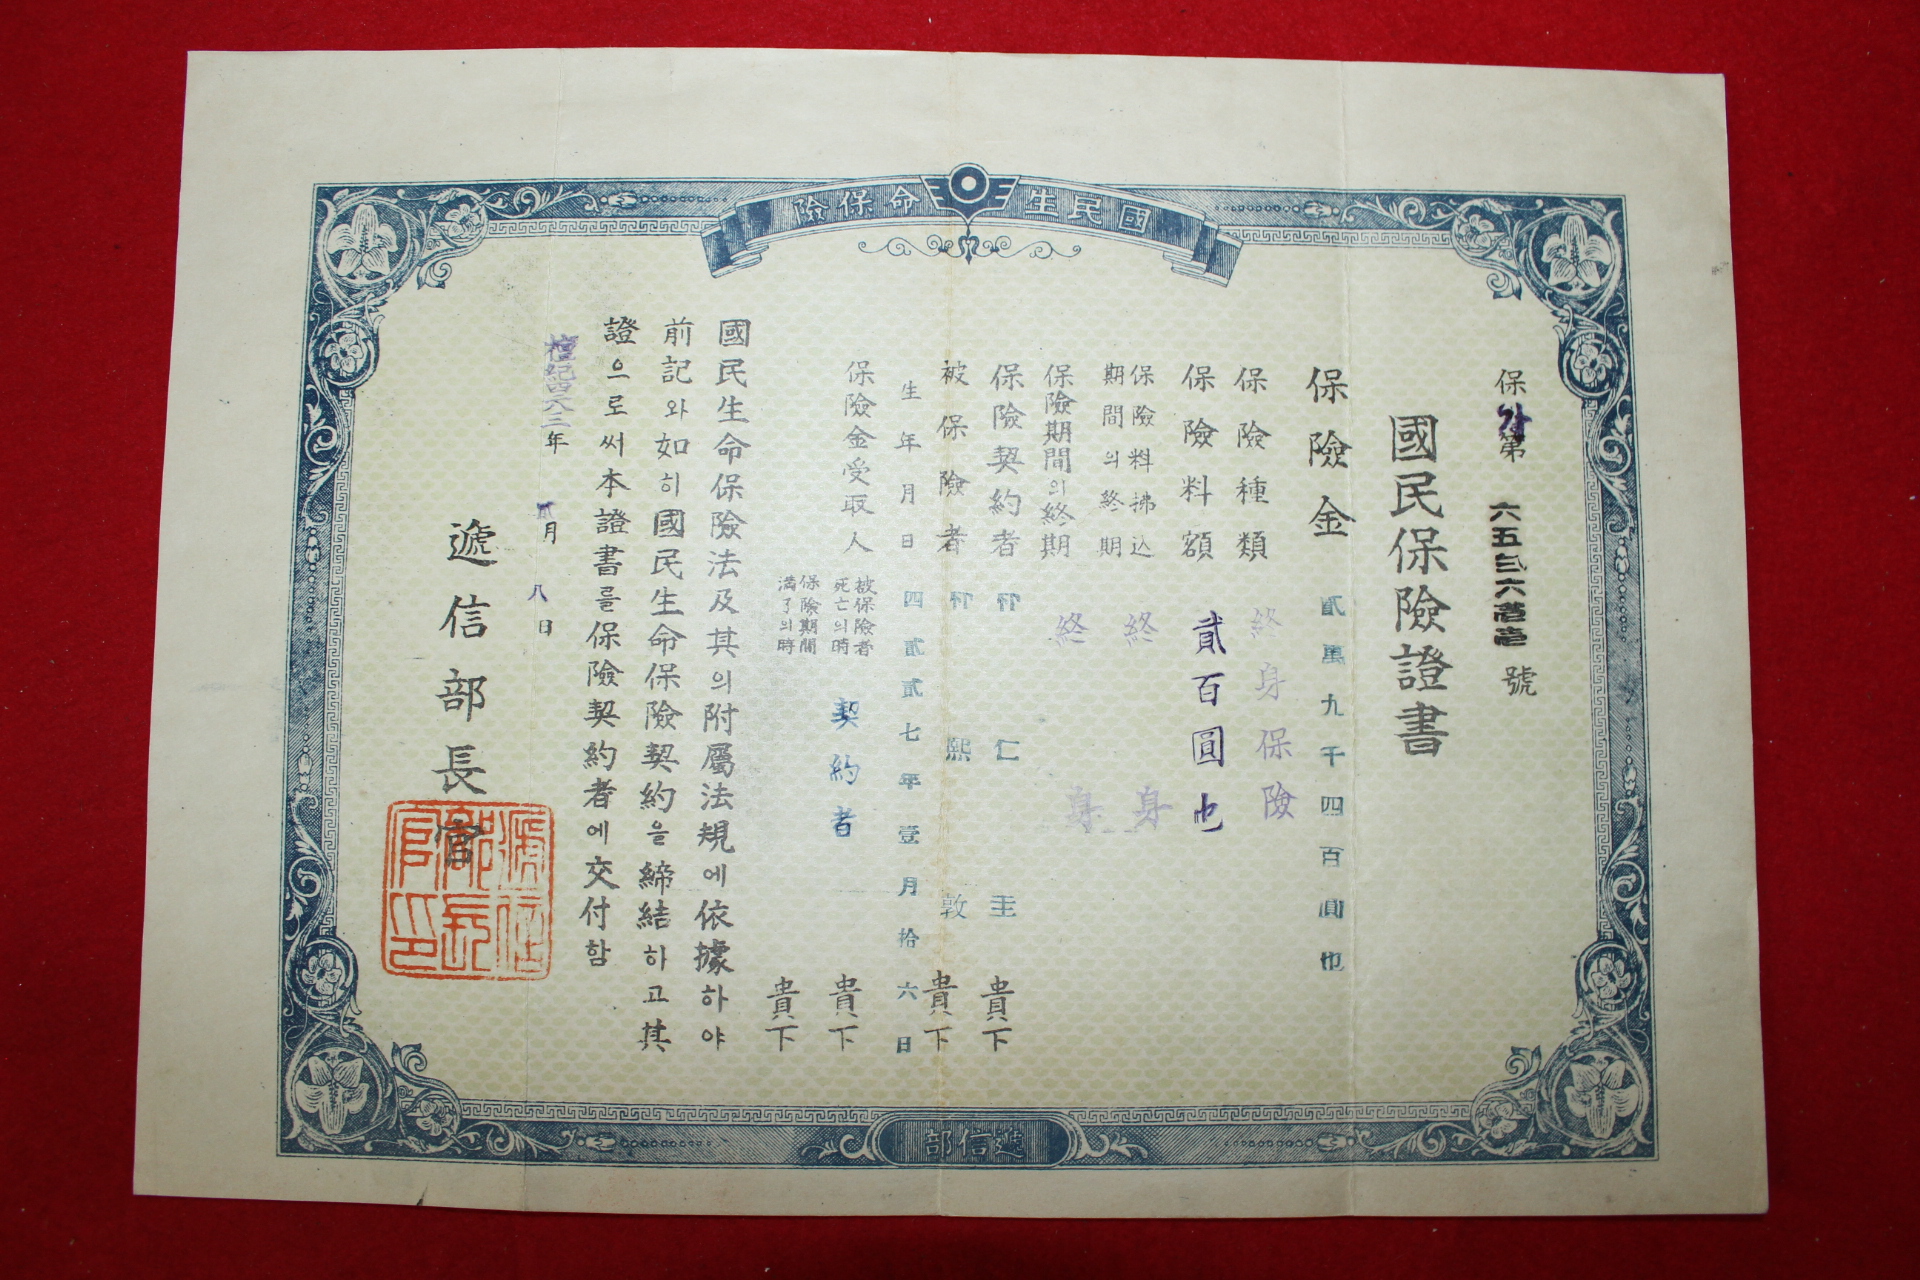 國民生命保險
保가第 六五三六壱壱 號
國民保險證書
保險金 貳萬九千四百圓也
保險種類 終身保險
保險料額 貳百圓也
保險料拂込期間의終期 終身
保險期間의終期 終身
保險契約者 仁圭 貴下
被保險者 熙敦 貴下
生年月日 四貳貳七年壹月拾六日
保險金受取人
被保險者死亡의時 契約者 貴下
保險期間満了의時 貴下
國民生命保險法及其의附屬法規에依據하야
前記와如히國民生命保險契約을締結하고其
證으로써本證書를保險契約者에交付함
檀紀四二八三年 貳月 八日
遞信部長官
遞信部長官印
遞信部